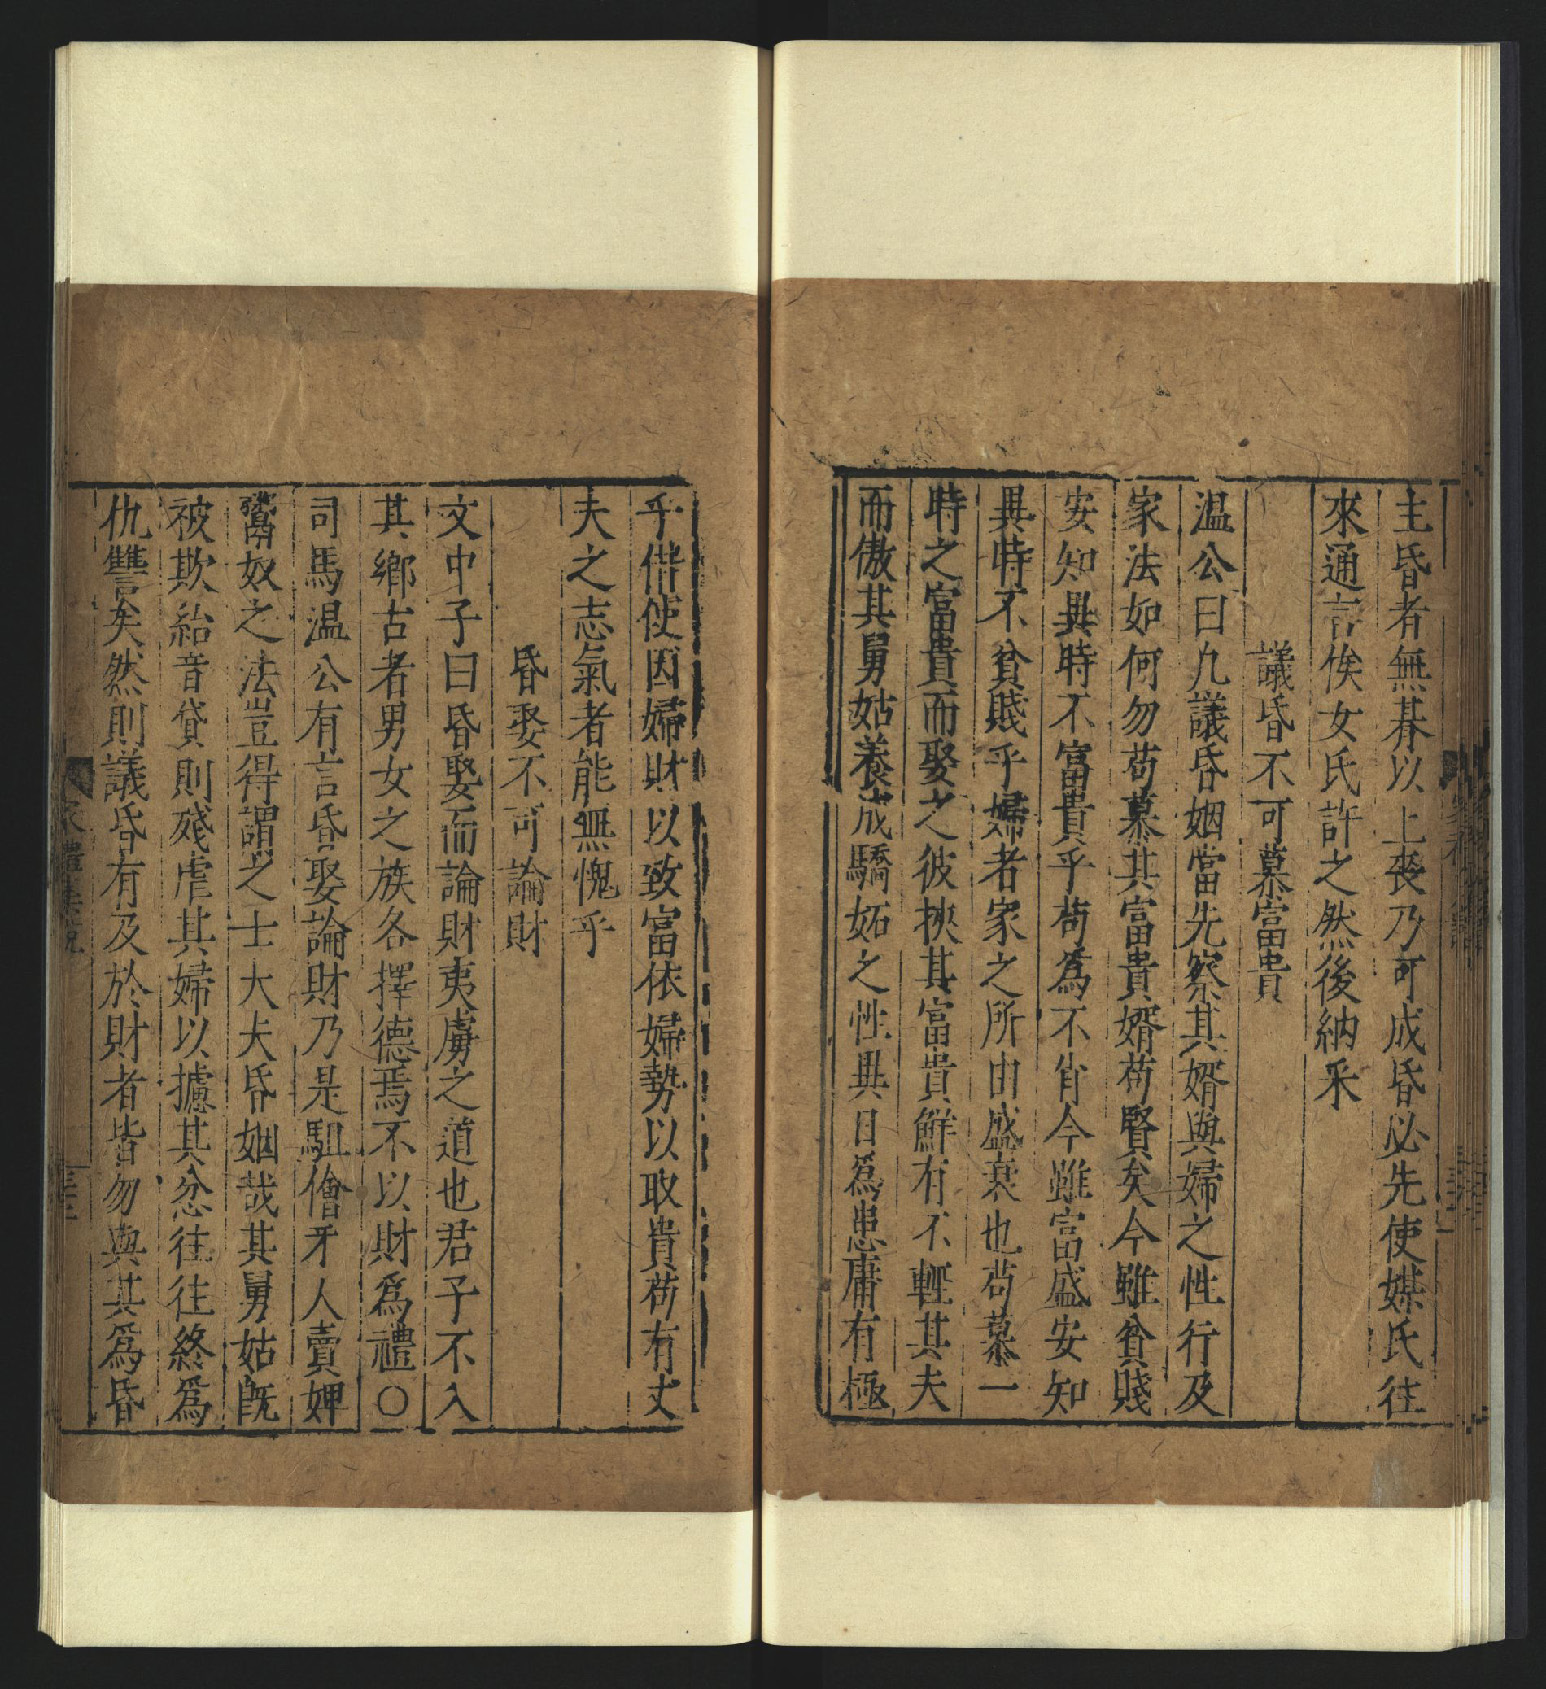 主昏者無朞以上喪乃可成昏必先使媒氏往
來通言俟女氏許之然後納采
議昏不可慕富貴
温公曰凢議昏姻當先察其婿與婦之性行及
家法如何勿苟慕其富貴婿苟賢矣今雖貧賤
安知異時不富貴乎苟爲不肖今雖富盛安知
異時不貧賤乎婦者家之所由盛衰也苟慕一
時之富貴而娶之彼挾其富貴鮮有不輕其夫
而傲其舅姑養成驕妬之性異日爲患庸有極
乎借使因婦財以致富依婦勢以取貴苟有丈
夫之志氣者能無愧乎
昏娶不可論財
文中子曰昏娶而論財夷虜之道也君子不入
其鄉古者男女之族各擇德焉不以財爲禮○
司馬温公有言昏娶論財乃是駔儈牙人賣婢
鬻奴之法豈得謂之士大夫昏姻哉其舅姑旣
被欺紿音貸則殘虐其婦以攄其忿往往終爲
仇讐矣然則議昏有及於財者皆勿與其爲昏